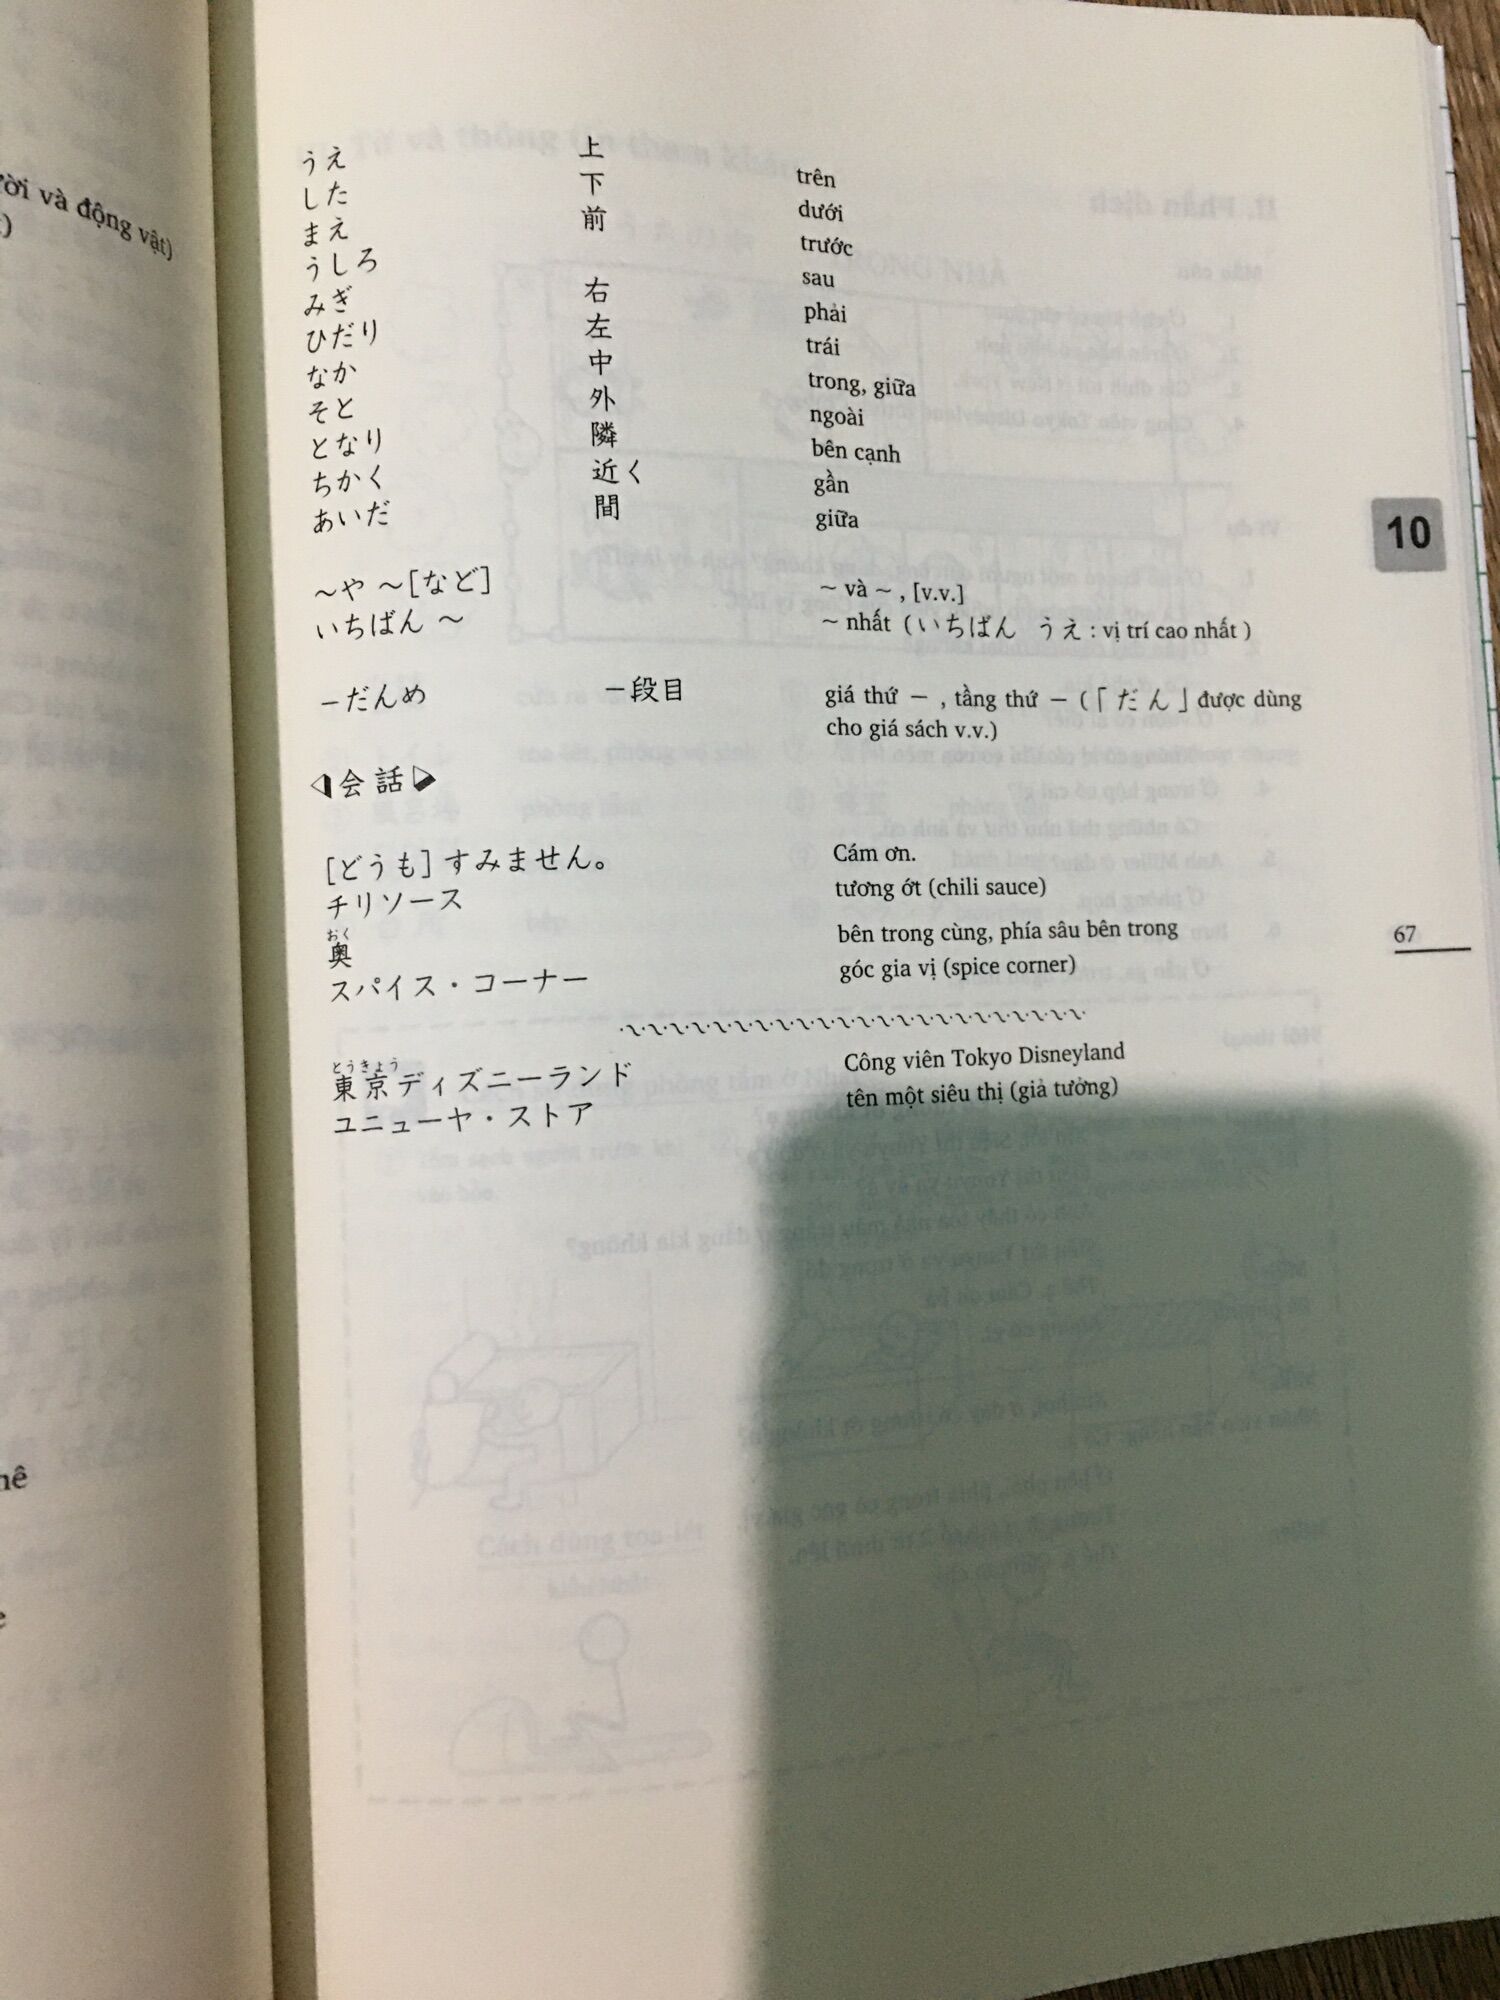 うえ 上 trên
した 下 dưới
まえ 前 trước
うしろ sau
みぎ 右 phải
ひだり 左 trái
なか 中 trong, giữa
そと 外 ngoài
となり 隣 bên cạnh
ちかく 近く gần
あいだ 間 giữa
～や ～[など] ~ và ~ , [v.v.]
いちばん ～ ~ nhất (いちばん うえ : vị trí cao nhất)
－だんめ －段目 giá thứ － , tầng thứ － (「だん」được dùng
cho giá sách v.v.)
会話
[どうも] すみません。 Cám ơn.
チリソース tương ớt (chili sauce)
おく
奥 bên trong cùng, phía sâu bên trong
スパイス・コーナー góc gia vị (spice corner)
とうきょう
東京ディズニーランド Công viên Tokyo Disneyland
ユニューヤ・ストア tên một siêu thị (giả tưởng)
10
67
và động vật)